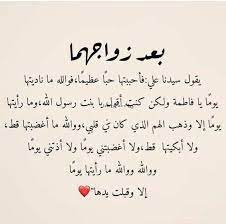 بعد زواجهما
يقول سيدنا علي:فأحببتها حبًا عظيمًا،فوالله ما ناديتها
يومًا يا فاطمة ولكن كنت أقول يا بنت رسول الله،وما رأيتها
يومًا إلا وذهب الهم الذي كان في قلبي،ووالله ما أغضبتها قط،
ولا أبكيتها قط،ولا أغضبتني يومًا ولا أذتني يومًا
ووالله ووالله ما رأيتها يومًا
إلا وقبلت يدها"❤